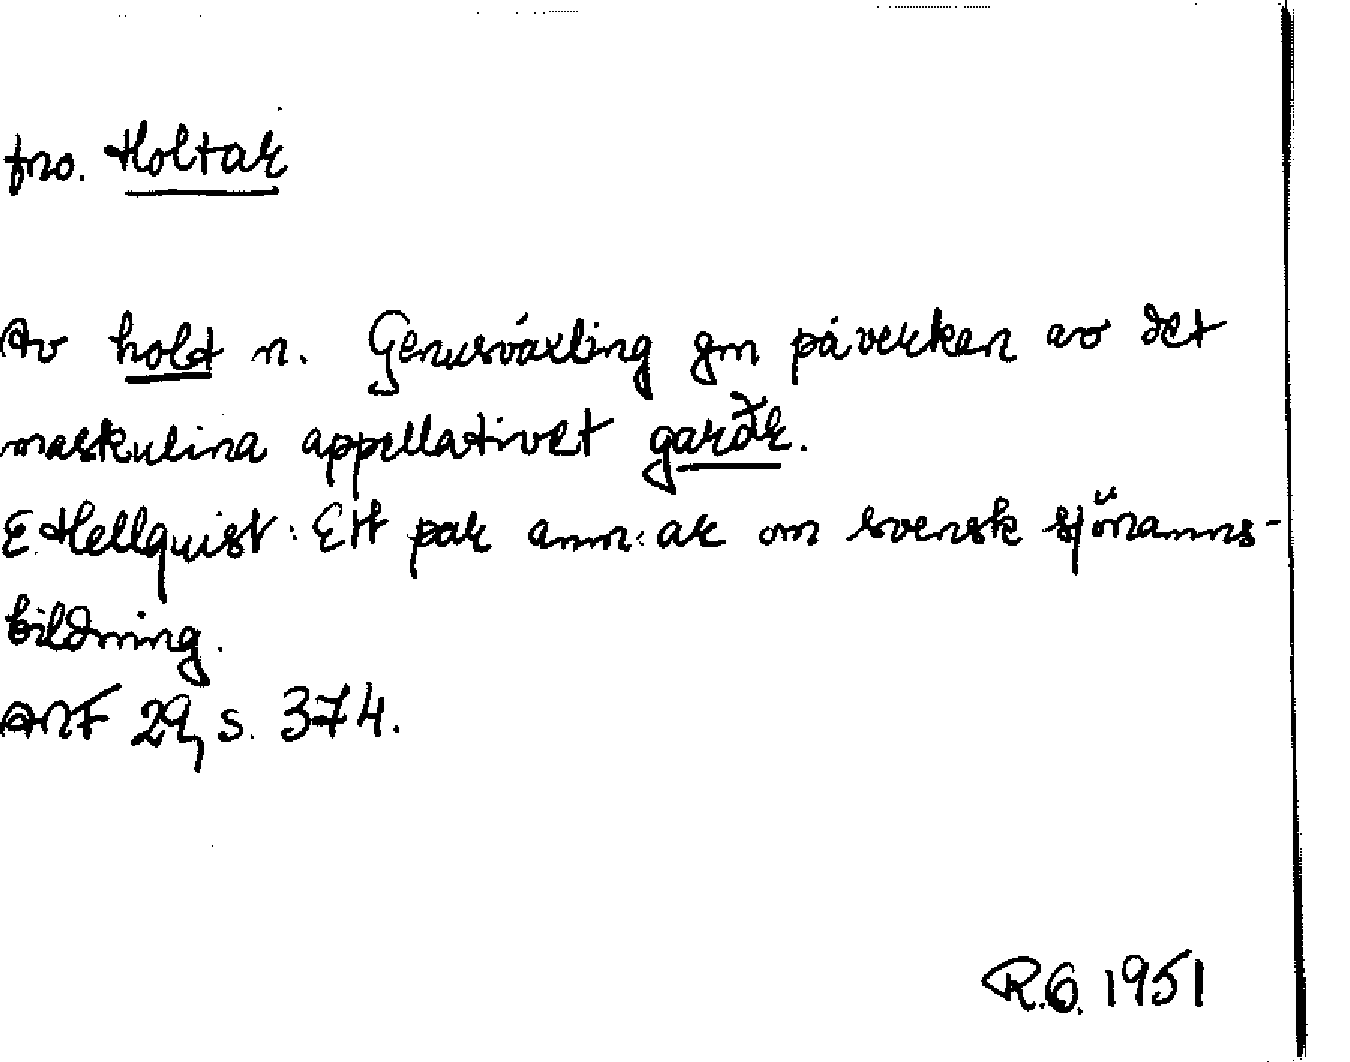 fno. Holtar
Av holt n. Genusväxling gm påverkan av det
maskulina appellativet garðr.
E. Hellquist: Ett par anm:ar om svensk sjönamns-
bildning.
ANF 29, s. 374.
R.G. 1951